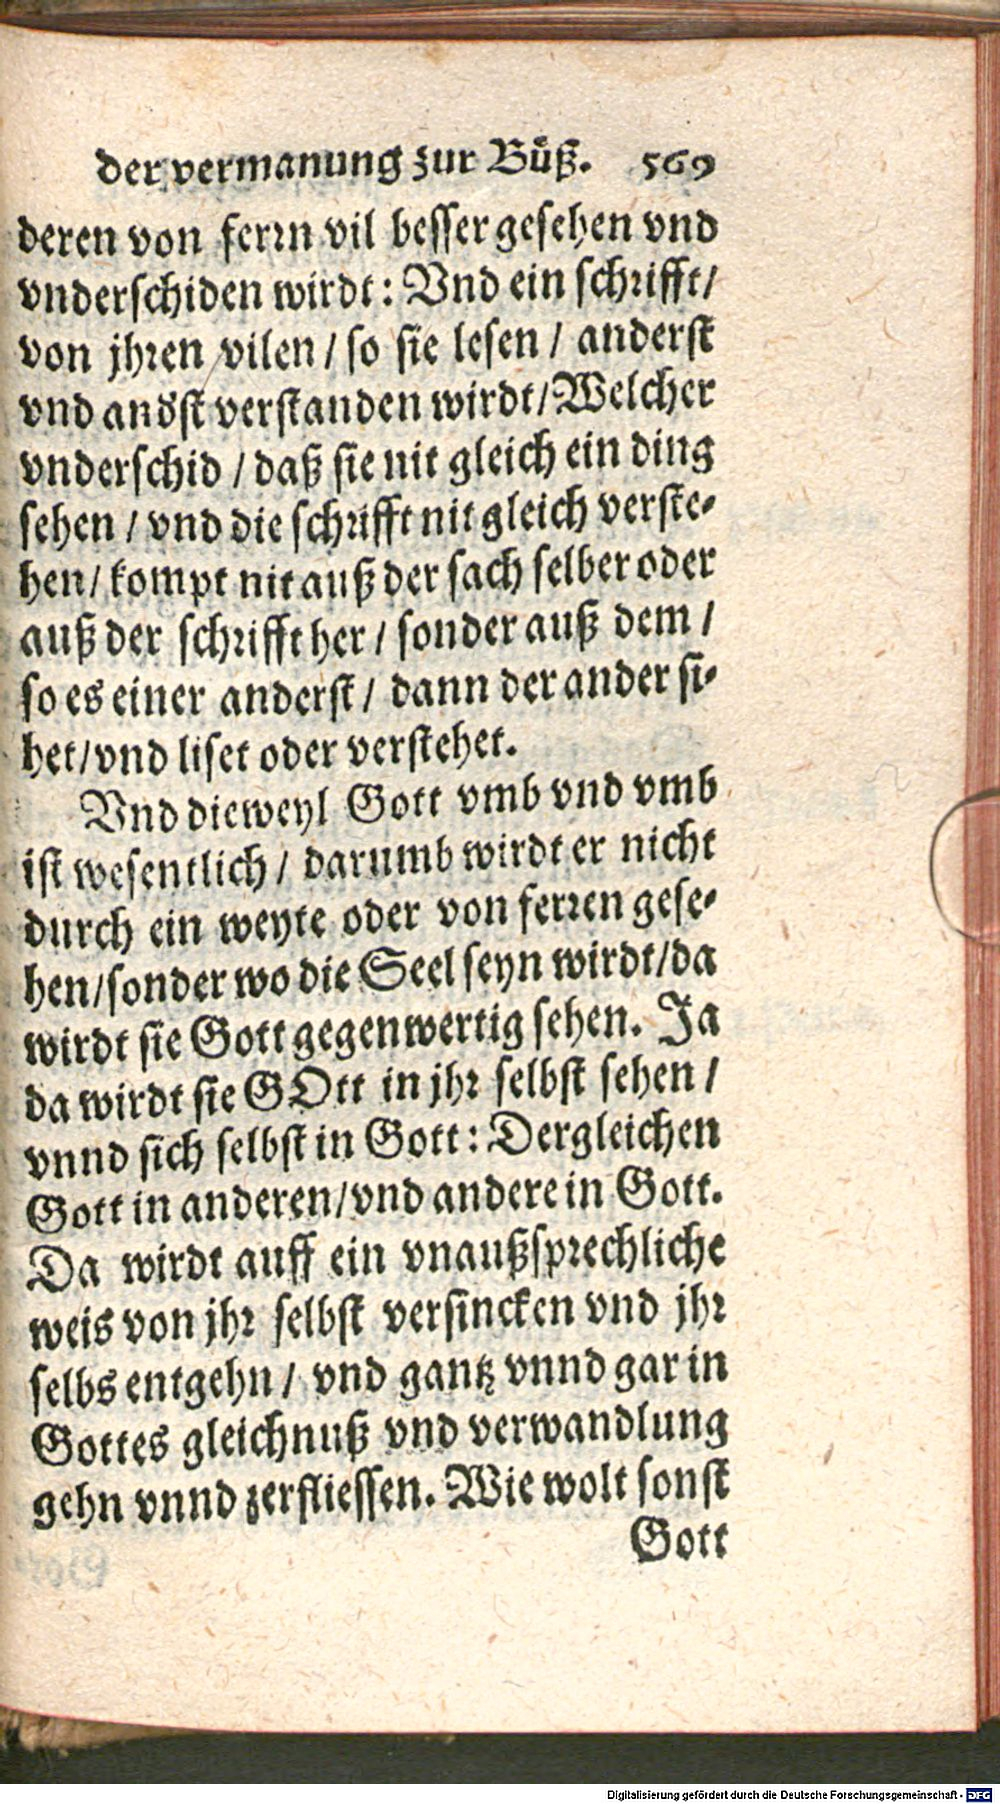 der vermanung zur Bůß. 569
deren von ferrn vil besser gesehen vnd
vnderschiden wirdt: Vnd ein schrifft/
von jhren vilen / so sie lesen / anderst
vnd andst verstanden wirdt/ Welcher
vnderschid / daß sie nit gleich ein ding
sehen / vnd die schrifft nit gleich verste-
hen / kompt nit auß der sach selber oder
auß der schrifft her / sonder auß dem /
so es einer anderst / dann der ander si-
het/ vnd liset oder verstehet.
Vnd dieweyl Gott vmb vnd vmb
ist wesentlich / darumb wirdt er nicht
durch ein weyte oder von ferren gese-
hen/sonder wo die Seel seyn wirdt/da
wirdt sie Gott gegenwertig sehen. Ja
da wirdt sie GOtt in jhr selbst sehen /
vnnd sich selbst in Gott: Dergleichen
Gott in anderen/vnd andere in Gott.
Da wirdt auff ein vnaußsprechliche
weis von jhr selbst versincken vnd jhr
selbs entgehn / vnd gantz vnnd gar in
Gottes gleichnuß vnd verwandlung
gehn vnnd zerfliessen. Wie wolt sonst
Gott
Digitalisierung gefördert durch die Deutsche Forschungsgemeinschaft - DFG